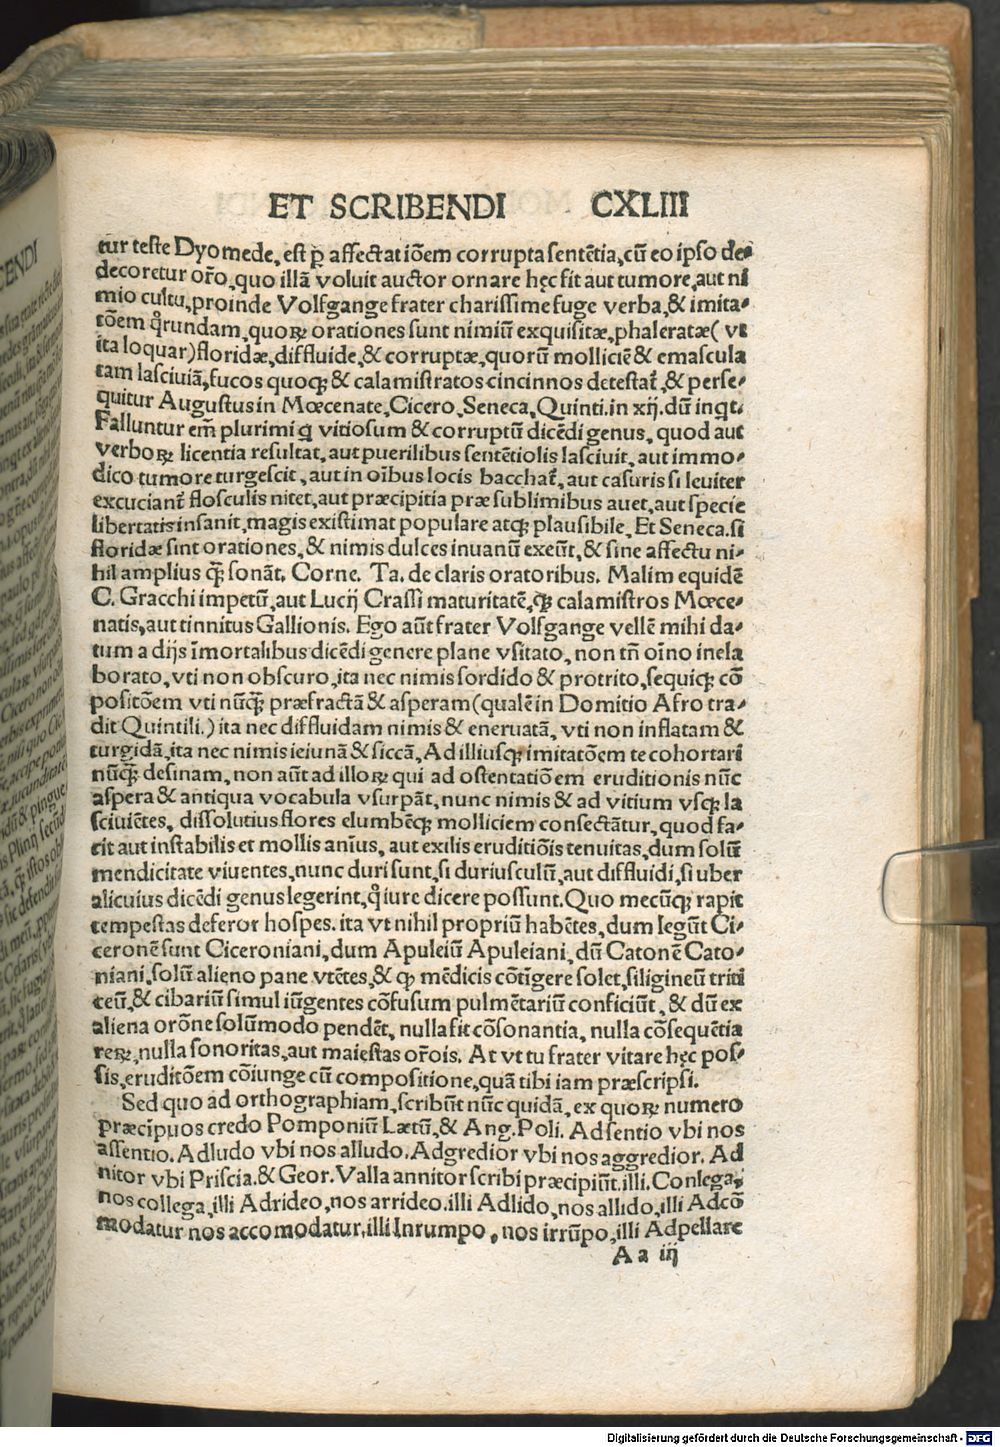 ET SCRIBENDI CXLIII
tur teste Dyomede, est p̱ affectatiõem corrupta sentẽtia, cũ eo ipso de⸗
decoretur or̃o, quo illã voluit auctor ornare hęc fit aut tumore, aut ni
mio cultu, proinde Volfgange frater charissime fuge verba, & imita⸗
tõem qͦrundam, quoꝝ orationes sunt nimiũ exquisitæ, phaleratæ( vt
ita loquar) floridæ, diffluide, & corruptæ, quorũ molliciẽ & emascula
tam lasciuiã, fucos quoqꝫ & calamistratos cincinnos detestat᷑, & perse⸗
quitur Augustus in Mœcenate, Cicero, Seneca, Quinti. in xij. dũ inqt.
Falluntur em̃ plurimi q̇ vitiosum & corruptũ dicẽdi genus, quod aut
verboꝝ licentia resultat, aut puerilibus sentẽtiolis lasciuit, aut immo⸗
dico tumore turgescit, aut in oĩbus locis bacchat᷑, aut casuris si leuiter
excuciant᷑ flosculis nitet, aut præcipitia præ sublimibus auet, aut specie
libertatis insanit, magis existimat populare atqꝫ plausibile. Et Seneca. si
floridæ sint orationes, & nimis dulces in uanũ exeũt, & sine affectu ni⸗
hil amplius qꝫ̃ sonãt. Corne. Ta. de claris oratoribus. Malim equidẽ
C. Gracchi impetũ, aut Lucij Crassi maturitatẽ, qꝫ̃ calamistros Mœce⸗
natis, aut tinnitus Gallionis. Ego aũt frater Volfgange vellẽ mihi da⸗
tum a dijs ĩmortalibus dicẽdi genere plane vsitato, non tñ oĩno inela
borato, vti non obscuro, ita nec nimis sordido & protrito, sequiqꝫ cõ
positõem vti nũqꝫ̃ præfractã & asperam( qualẽ in Domitio Afro tra⸗
dit Quintili.) ita nec diffluidam nimis & eneruatã, vti non inflatam &
turgidã, ita nec nimis ieiunã & siccã, Ad illiusqꝫ imitatõem te cohortari
nũqꝫ̃ desinam, non aũt ad illoꝝ qui ad ostentatiõem eruditionis nũc
aspera & antiqua vocabula vsurpãt, nunc nimis & ad vitium vsqꝫ la
sciuiẽtes, dissolutius flores elumbẽqꝫ molliciem consectãtur, quod fa⸗
cit aut instabilis et mollis anĩus, aut exilis eruditiõis tenuitas, dum solũ
mendicitate viuentes, nunc duri sunt, si duriusculũ, aut diffluidi, si uber
alicuius dicẽdi genus legerint, qͦ iure dicere possunt. Quo mecũqꝫ rapit
tempestas deferor hospes. ita vt nihil propriũ habẽtes, dum legũt Ci⸗
ceronẽ sunt Ciceroniani, dum Apuleiũ Apuleiani, dũ Catonẽ Cato⸗
niani, solũ alieno pane vtẽtes, & qꝫ mẽdicis cõtigere solet, siligineũ triti
ceũ, & cibariũ simul iũgentes cõfusum pulmẽtariũ conficiũt, & dũ ex
aliena orõne solũmodo pendẽt, nulla fit cõsonantia, nulla cõsequẽtia
reꝝ, nulla sonoritas, aut maiestas or̃ois. At vt tu frater vitare hęc pos⸗
sis, eruditõem cõiunge cũ compositione, quã tibi iam præscripsi.
Sed quo ad orthographiam, scribũt nũc quidã, ex quoꝝ numero
præcipuos credo Pomponiũ Lætũ, & Ang. Poli. Adsentio vbi nos
assentio. Adludo vbi nos alludo. Adgredior vbi nos aggredior. Ad
nitor vbi Priscia. & Geor. Valla annitor scribi præcipiũt. illi. Conlega,
nos collega, illi Adrideo, nos arrideo. illi Adlido, nos allido, illi Adcõ
modatur nos accomodatur, illi Inrumpo, nos irrũpo, illi Adpellare
A a iij
Digitalisierung gefördert durch die Deutsche Forschungsgemeinschaft - DFG